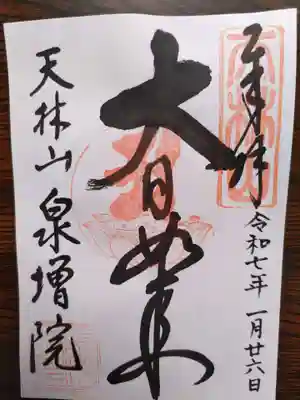 奉拝
令和七年 一月廿六日
大日如来
天林山 泉増院